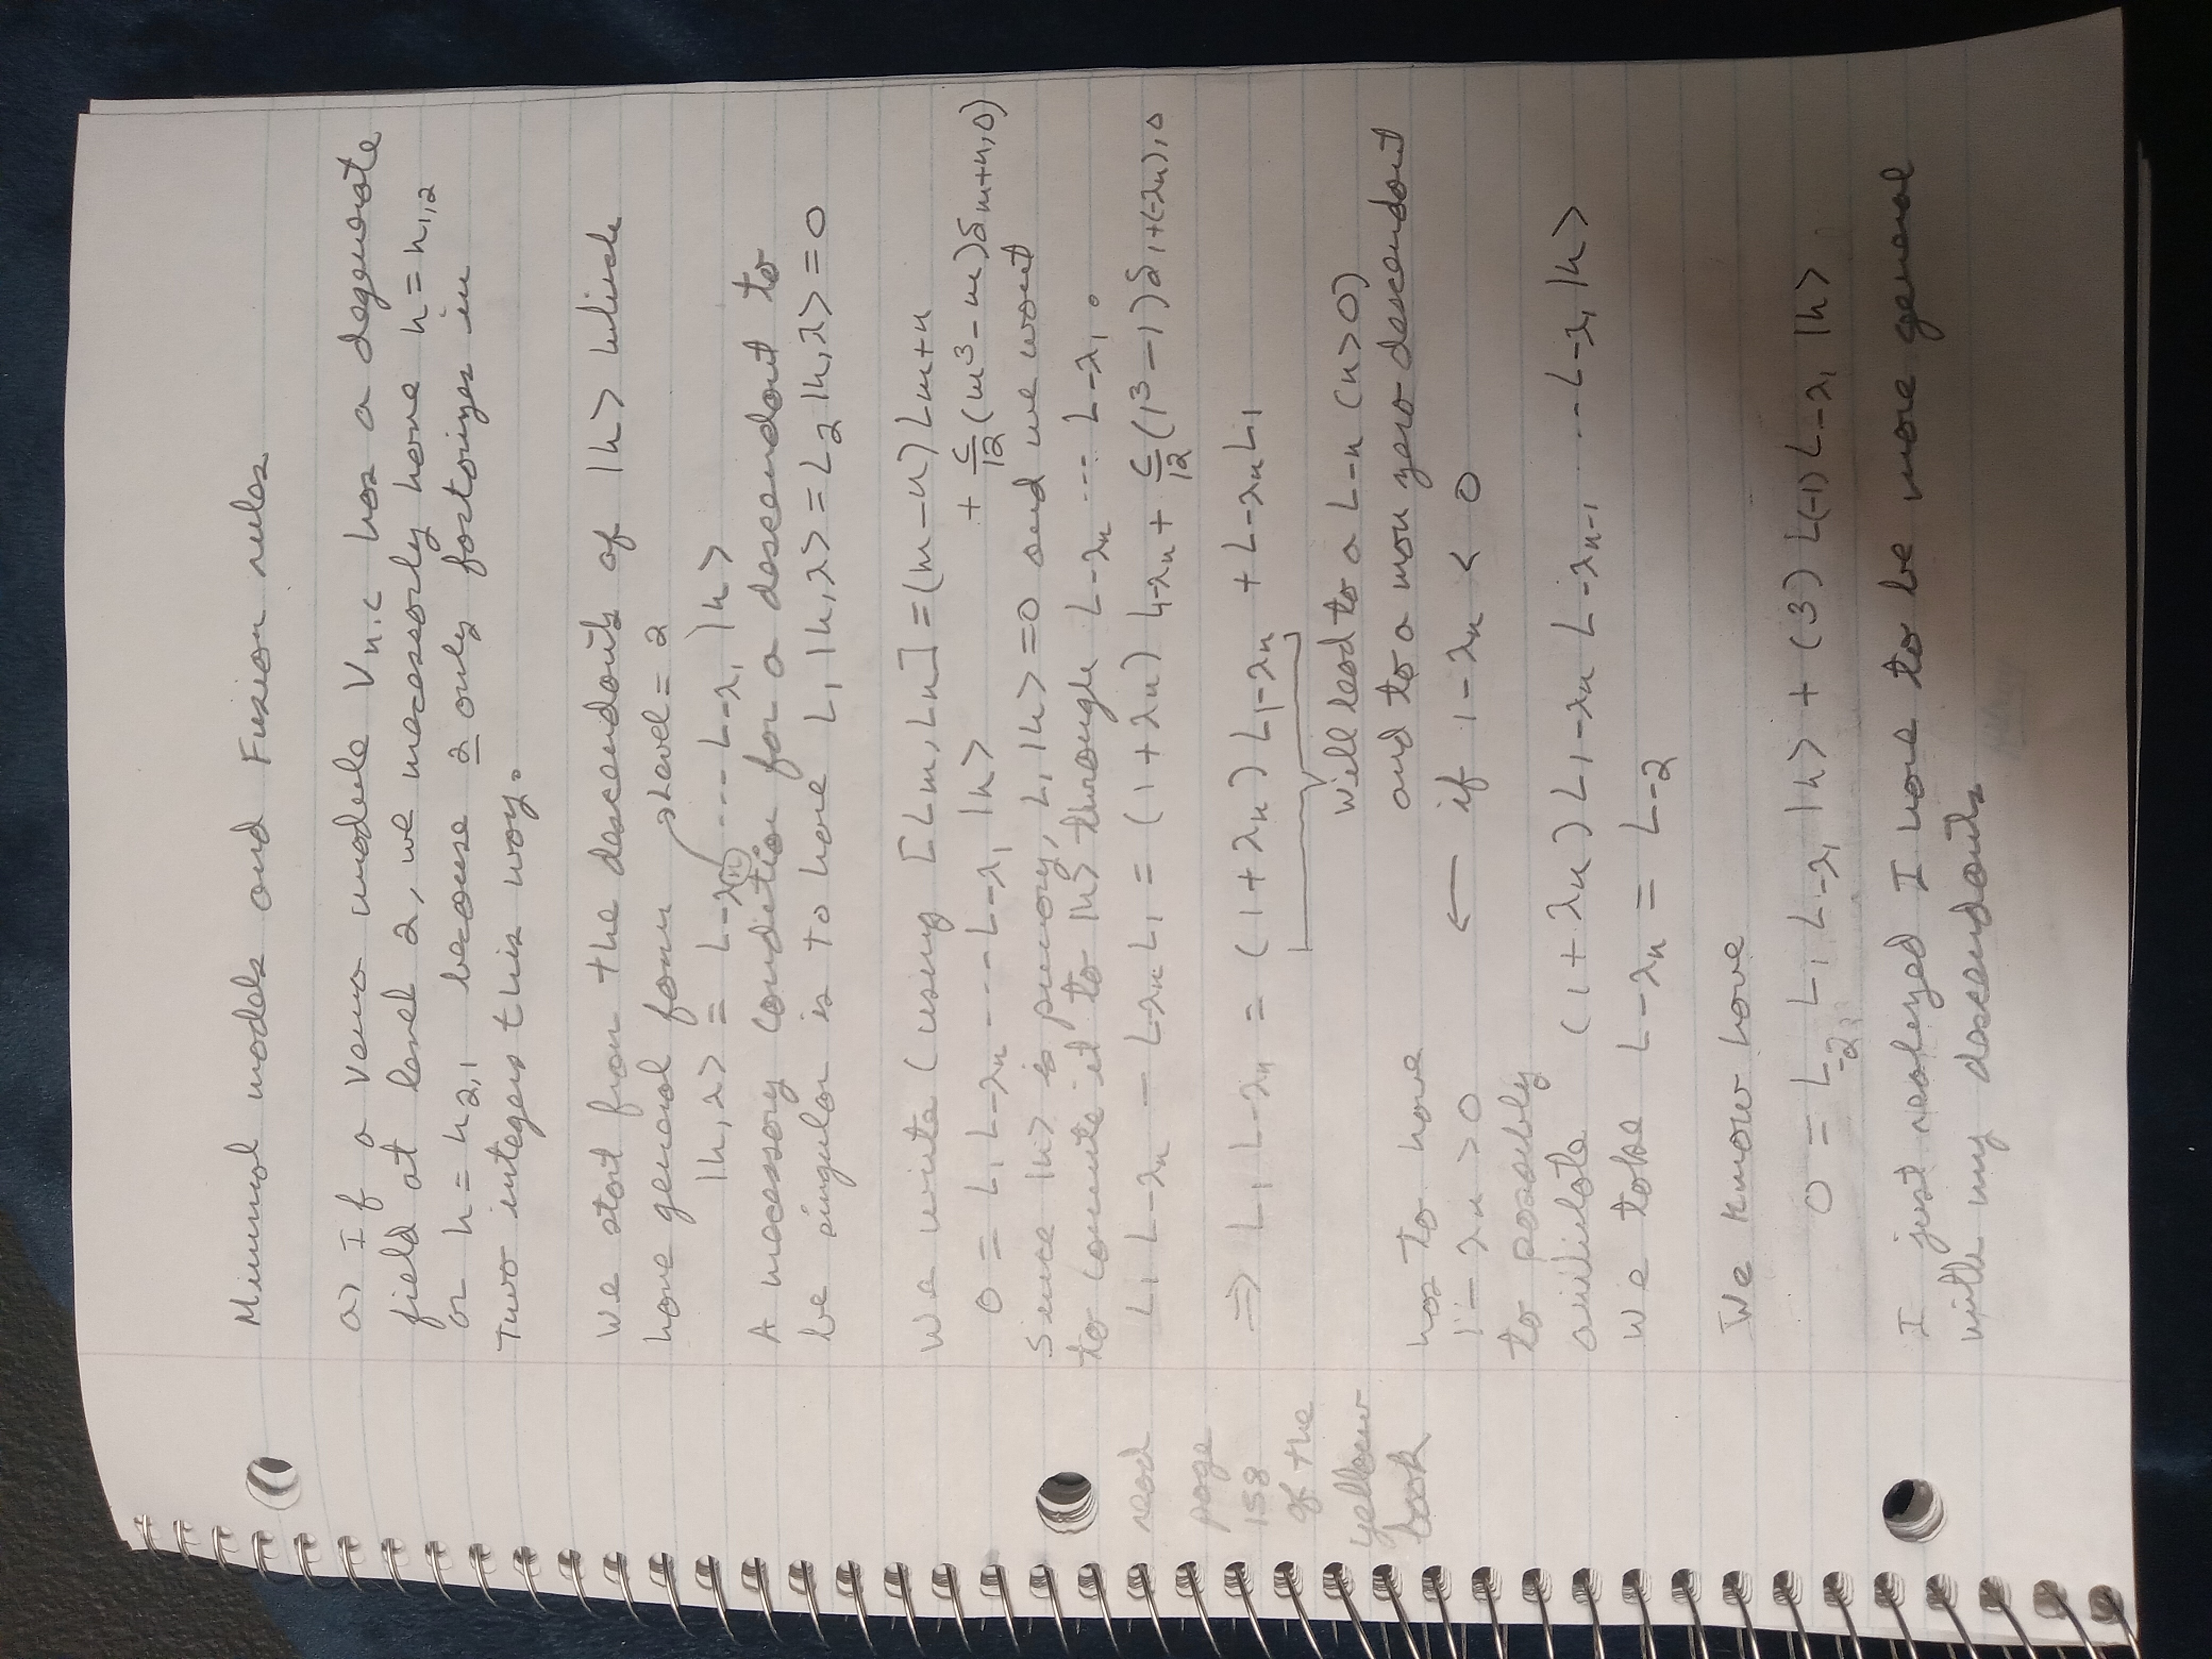 Minimal models and Fusion rules
a) If a Verma module V_{h,c} has a degenerate
field at level 2, we necessarily have h = h_{1,2}
or h = h_{2,1} because 2 only factorizes in
two integers this way.
We start from the descendants of |h> which
have general form level = 2
|h,λ> = L_{-λ_n} ... L_{-λ_1} |h>
A necessary condition for a descendant to
be singular is to have L_1 |h,λ> = L_2 |h,λ> = 0
We write (using [L_m, L_n] = (m-n) L_{m+n}
+ c/12 (m³-m) δ_{m+n,0})
0 = L_1 L_{-λ_n} ... L_{-λ_1} |h>
Since |h> is primary, L_1 |h> = 0 and we want
to commute it to |h> through L_{-λ_n} ... L_{-λ_1}.
L_1 L_{-λ_n} - L_{-λ_n} L_1 = (1+λ_n) L_{1-λ_n} + c/12 (1³-1) δ_{1+(-λ_n),0}
=> L_1 L_{-λ_n} = (1+λ_n) L_{1-λ_n} + L_{-λ_n} L_1
read
page
158
of the
yellow
book
will lead to a L_{-n} (n>0)
and to a non zero descendant
← if 1-λ_n < 0
has to have
1-λ_n > 0
to possibly
annihilate (1+λ_n) L_{1-λ_n} L_{-λ_{n-1}} ... L_{-λ_1} |h>
We take L_{-λ_n} = L_{-2}
We know have
0 = L_{-2} L_1 L_{-λ_1} |h> + (3) L_{(-1)} L_{-λ_1} |h>
I just realyzed I have to be more general
with my descendants